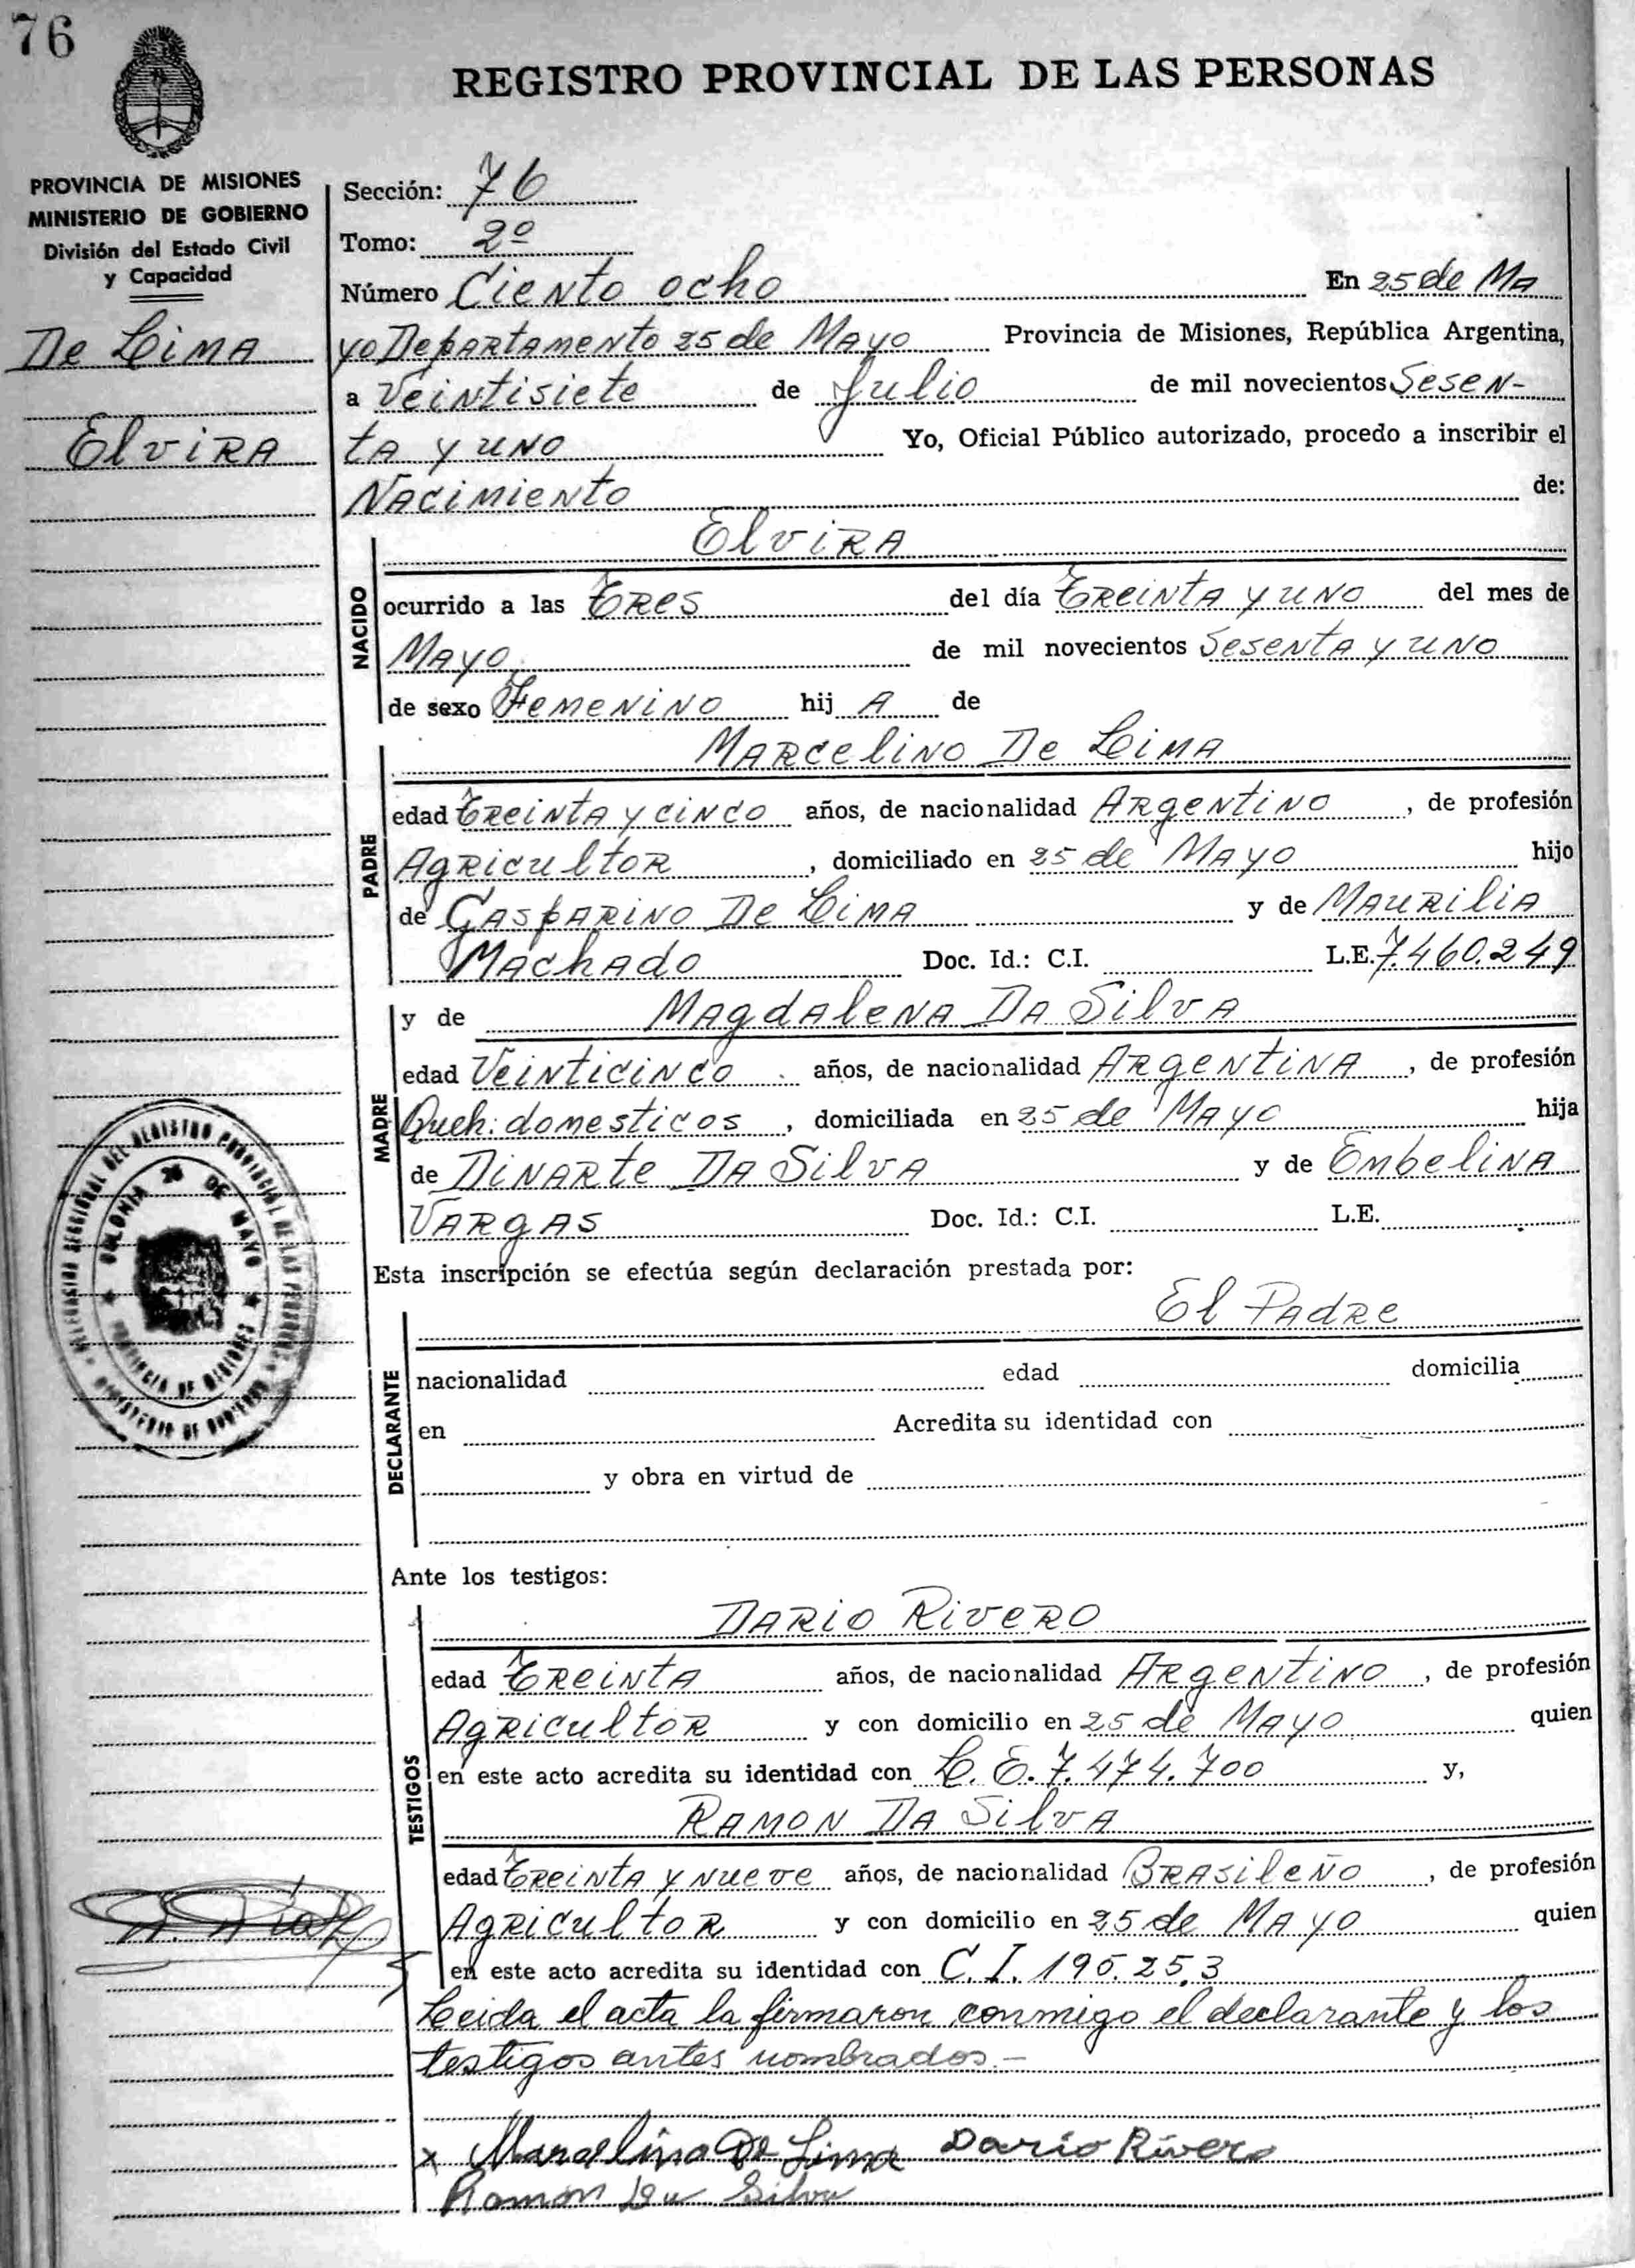 76
REGISTRO PROVINCIAL DE LAS PERSONAS
PROVINCIA DE MISIONES
MINISTERIO DE GOBIERNO
División del Estado Civil
y Capacidad
De Lima
Elvira
Sección: 76
Tomo: 2º
Número Ciento ocho En 25 de Ma
yo Departamento 25 de Mayo Provincia de Misiones, República Argentina,
a Veintisiete de Julio de mil novecientos Sesen-
ta y uno Yo, Oficial Público autorizado, procedo a inscribir el
Nacimiento de:
Elvira
NACIDO
ocurrido a las Tres del día Treinta y uno del mes de
Mayo de mil novecientos Sesenta y uno
de sexo Femenino hij A de
Marcelino De Lima
PADRE
edad Treinta y cinco años, de nacionalidad Argentino, de profesión
Agricultor, domiciliado en 25 de Mayo hijo
de Gasparino De Lima y de Maurilia
Machado Doc. Id.: C.I. L.E. 7.460.249
y de Magdalena Da Silva
MADRE
edad Veinticinco años, de nacionalidad Argentina, de profesión
Queh: domesticos, domiciliada en 25 de Mayo hija
de Dinarte Da Silva y de Embelina
Vargas Doc. Id.: C.I. L.E.
COLONIA 25 DE MAYO
PROVINCIA DE MISIONES
DELEGACION SECCIONAL DEL REGISTRO PROVINCIAL DE LAS PERSONAS
MINISTERIO DE GOBIERNO
Esta inscripción se efectúa según declaración prestada por:
El Padre
DECLARANTE
nacionalidad edad domicilia
en Acredita su identidad con
y obra en virtud de
Ante los testigos:
Dario Rivero
TESTIGOS
edad Treinta años, de nacionalidad Argentino, de profesión
Agricultor y con domicilio en 25 de Mayo quien
en este acto acredita su identidad con L.E. 7.474.700 y,
Ramon Da Silva
edad Treinta y nueve años, de nacionalidad Brasileño, de profesión
Agricultor y con domicilio en 25 de Mayo quien
en este acto acredita su identidad con C.I. 195.253
Leida el acta la firmaron conmigo el declarante y los
testigos antes nombrados.-
x Marcelino De Lima Dario Rivero
Ramon Da Silva